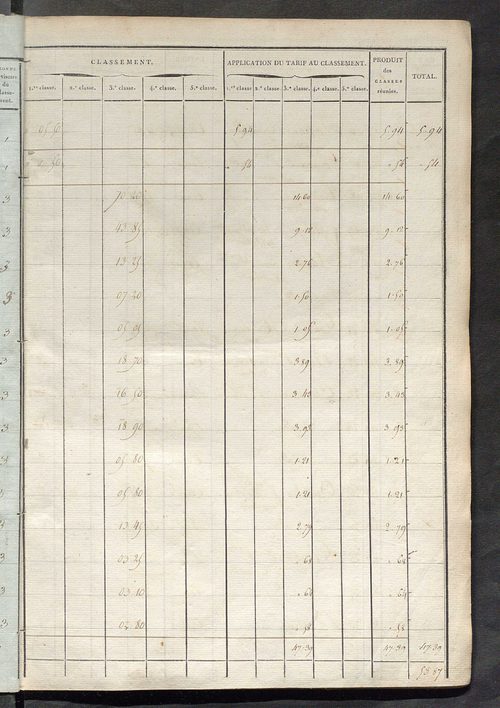 CLASSEMENT.
APPLICATION DU TARIF AU CLASSEMENT.
PRODUIT des CLASSES réunies.
TOTAL.
1.re classe. 2.e classe. 3.e classe. 4.e classe. 5.e classe. 1.re classe. 2.e classe. 3.e classe. 4.e classe. 5.e classe.
1 05 50 5.94 5.94 5.94
1 50 .54 .54 .54
3 70 20 14.60 14.60
3 43 85 9.12 9.12
3 13 25 2.76 2.76
3 07 20 1.50 1.50
3 05 05 1.05 1.05
3 18 70 3.89 3.89
3 16 50 3.43 3.43
3 18 90 3.93 3.93
3 05 80 1.21 1.21
3 05 80 1.21 1.21
3 13 45 2.79 2.79
3 03 25 .68 .68
3 03 10 .64 .64
3 02 80 .58 .58
47.39 47.39 47.39
53 87